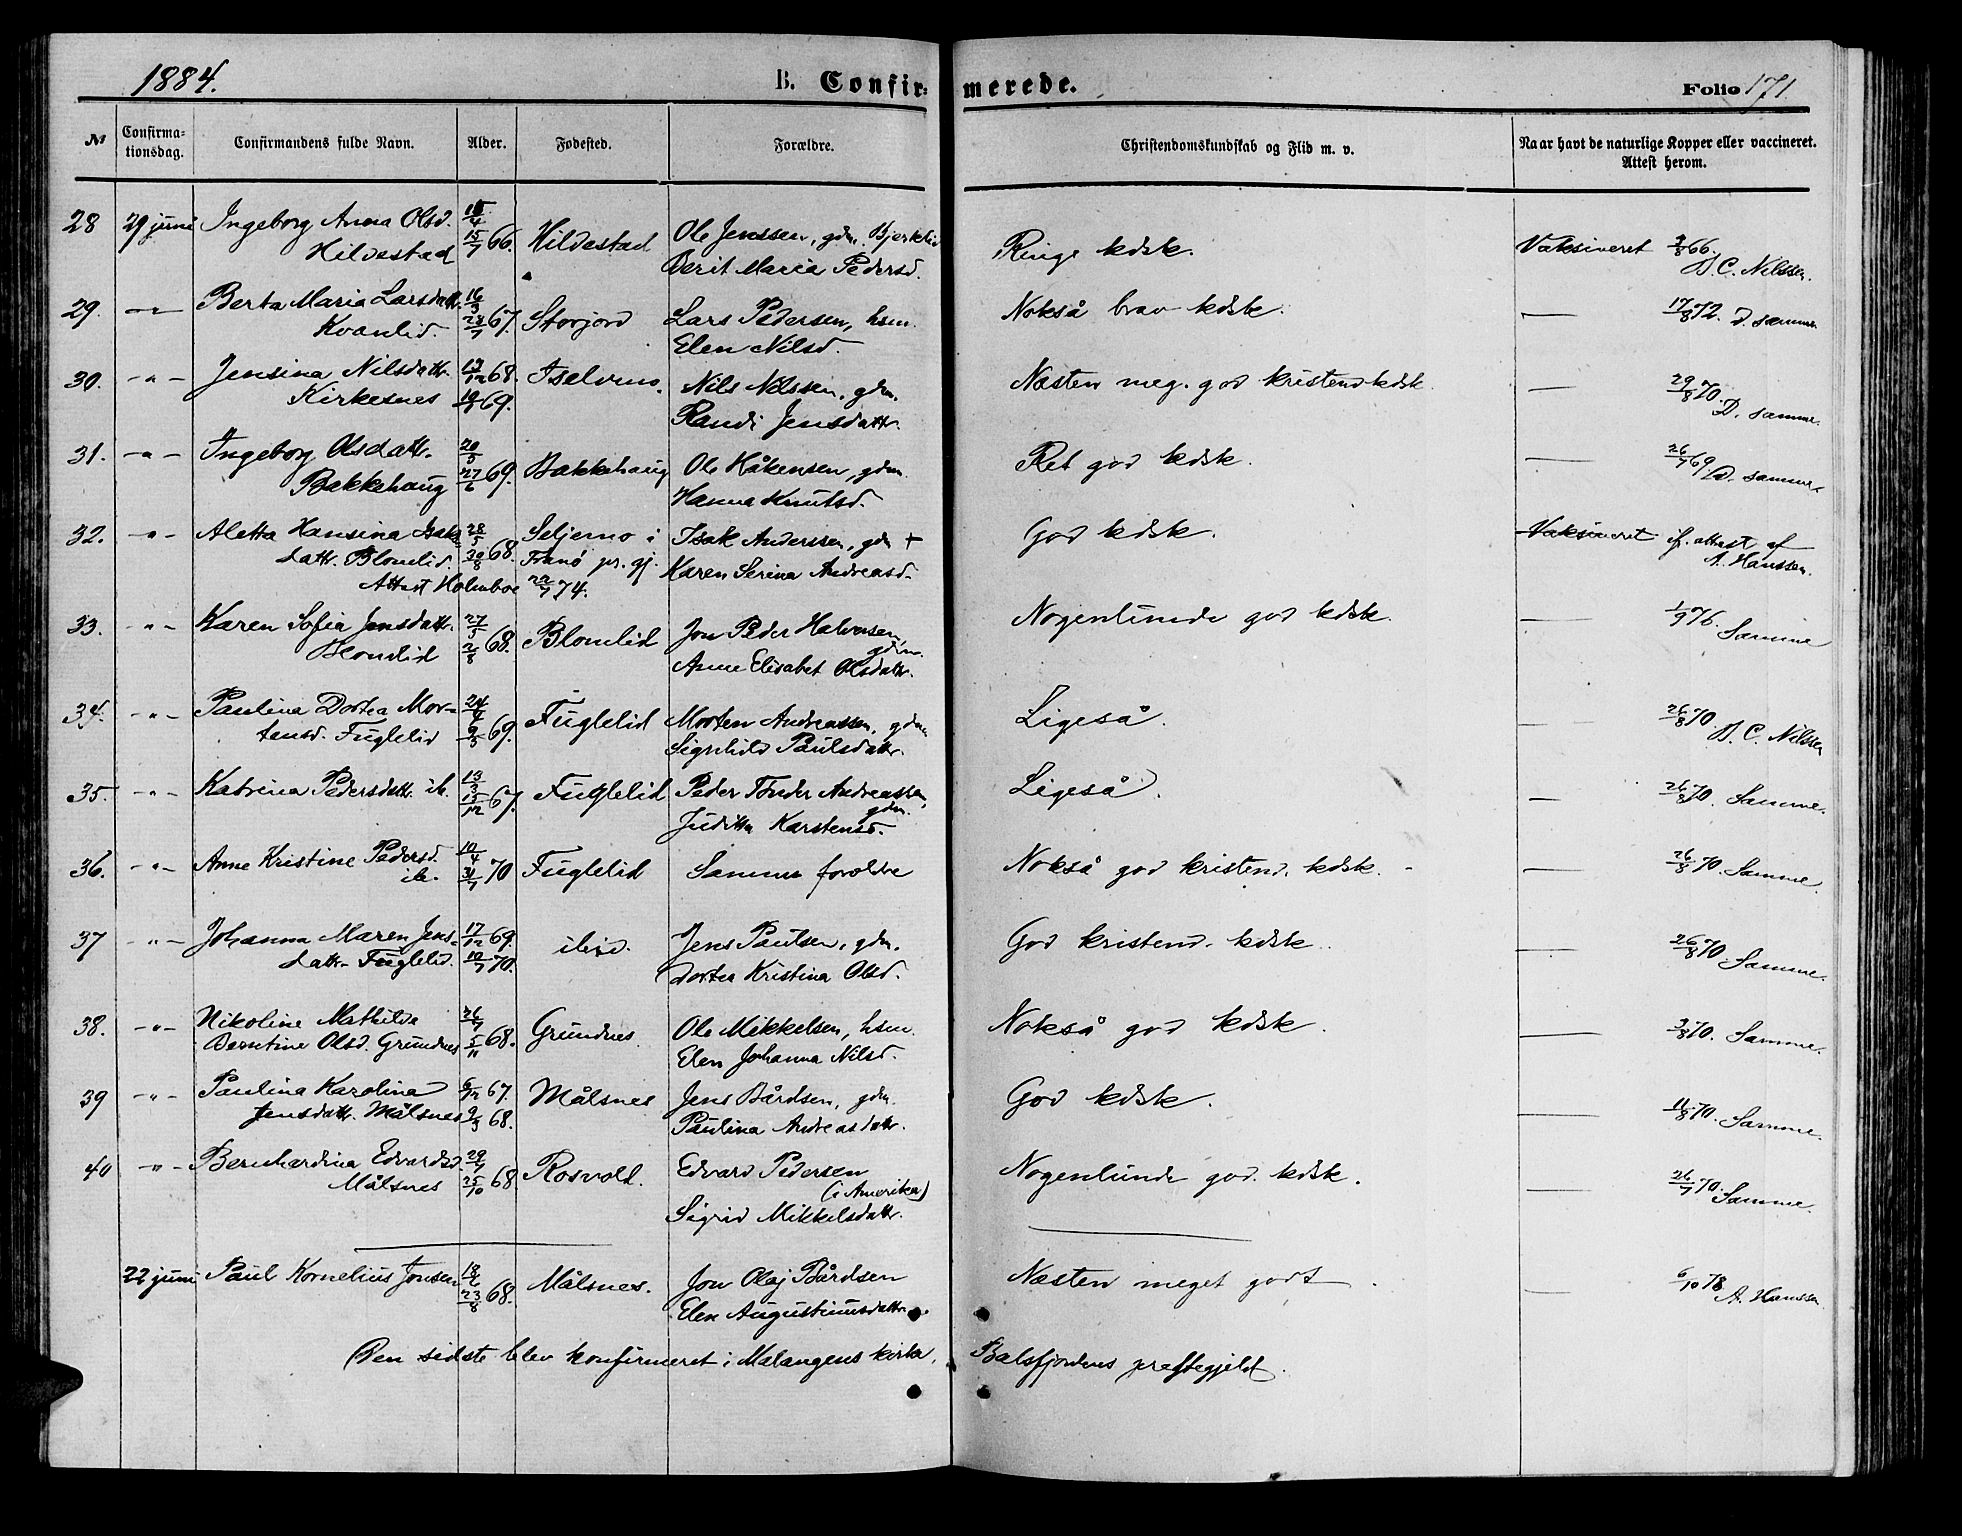 1884.
B. Confirmerede.
Folio 171
No
Confirmationsdag.
Confirmandens fulde Navn.
Alder.
Fødested.
Forældre.
Christendomskundskab og Flid m. v.
Naar havt de naturlige Kopper eller vaccineret. Attest herom.
28 29 juni Ingeborg Anna Olsd. Hildestad 15/7 66. Hildestad Ole Jenssen, gdm. Bjerklid Berit Maria Pedersd. Ringe kdsk. Vaksineret 66. D. C. Nilssen.
29. -"- Berta Maria Larsdattr. Kvanlid. 16/3 28/7 67. Storjord Lars Pedersen, hsm. Elen Nilsd. Nokså brav kdsk. — 17/8 72. D. samme.
30. -"- Jensina Nilsdattr. Kirkesnes 13/12 68. 69. Iselvmo. Nils Nilssen, gdm. Randi Jensdattr. Næsten meg. god kristend kdsk. — 29/8 70. D. samme.
31. -"- Ingeborg Olsdattr. Bakkehaug 20/5 27/6 69. Bakkehaug Ole Håkensen, gdm. Hanna Knutsd. Ret god kdsk. — 26/7 69. D. samme.
32. -"- Aletta Hansina Isaksdattr. Blomlid. 28/5 30/8 68. Seljemo i Tranø pr. gj. Isak Anderssen, gdm + Karen Serina Andreasd. God kdsk. Vaksineret if. attest af A. Hanssen.
Attest Holmboe 22/7 74.
33. -"- Karen Sofia Jensdattr. Blomlid 27/5 2/8 68. Blomlid Jon Peder Halvorsen, gdm. Anne Elisabet Olsdattr. Nogenlunde god kdsk. — 1/9 76. Samme
34. -"- Paulina Dortea Mortensd. Fuglelid 24/4 9/5 69. Fuglelid Morten Andreassen, gdm Signhild Paulsdattr. Ligeså. — 26/8 70. D. C. Nilssen
35. -"- Katrina Pedersdattr. ib. 13/3 15/12 67. Fuglelid Peder Tønder Andreassen, gdm. Juditta Karstensd. Ligeså. — 26/8 70. Samme.
36. -"- Anne Kristine Pedersd. ib. 10/4 31/7 70 Fuglelid Samme forældre Nokså god kristend. kdsk. — 26/8 70. Samme.
37 -"- Johanna Maren Jensdattr. Fuglelid. 17/12 69. 10/7 70. ibid. Jens Paulsen, gdm. Dortea Kristina Olsd. God kristend. kdsk. — 26/8 70. Samme.
38. -"- Nikoline Mathilde Berntine Olsd. Grundnes 26/7 5/11 68. Grundnes Ole Mikkelsen, hsm Elen Johanna Nilsd. Nokså god kdsk. — 3/8 70. Samme.
39 -"- Paulina Karolina Jensdattr. Målsnes 6/12 67. 9/3 68. Målsnes Jens Bårdsen, gdm. Paulina Andreasdattr. God kdsk. — 11/8 70. Samme.
40 -"- Bernhardina Edvardsd. Målsnes 29/7 25/10 68 Rosvold. Edvard Pedersen (i Amerika) Sigrid Mikkelsdattr. Nogenlunde god kdsk. — 26/7 70. Samme.
22 juni Paul Kornelius Jonsen 18/6 23/8 68. Målsnes. Jon Olaj Bårdsen Elen Augustinusdattr. Næsten meget godt. — 6/10 78 A. Hanssen
Den sidste blev konfirmeret i Malangens kirke, Balsfjordens præstegjeld.